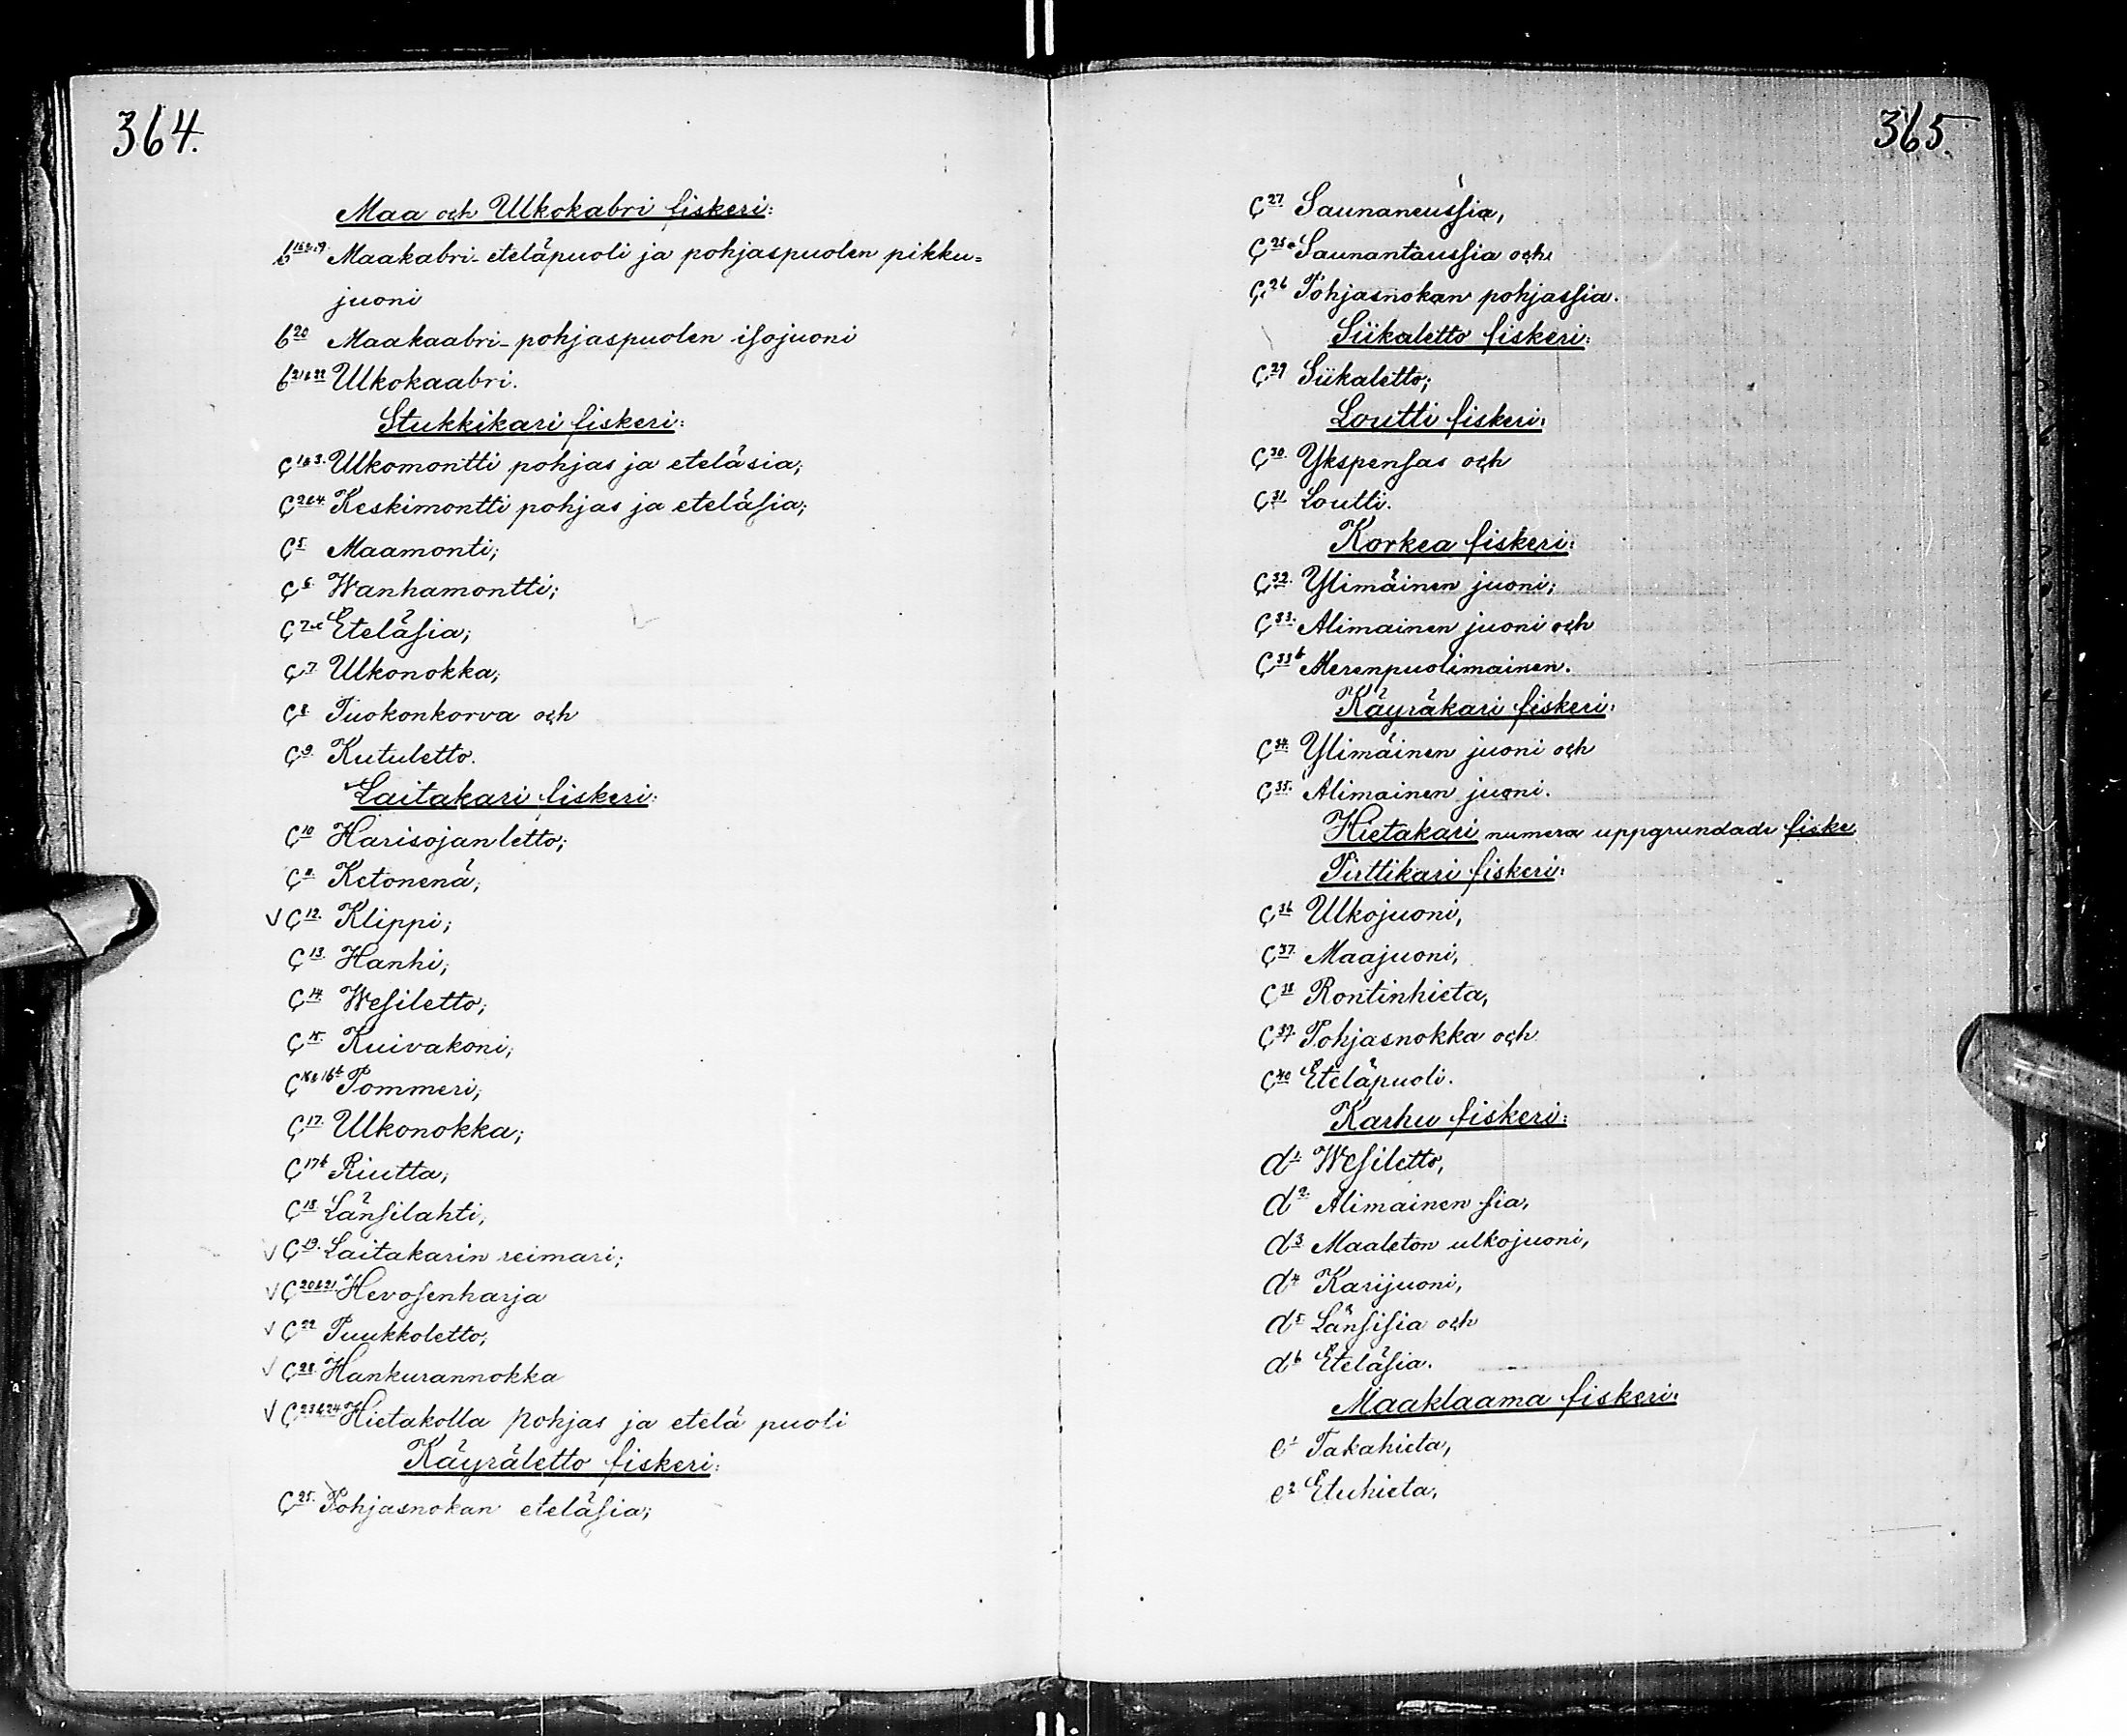 364.
Maa och Ulkokabri fiskeri:
b18&19 Maakabri-eteläpuoli ja pohjaspuolen pikku=
juoni
b20 Maakaabri-pohjaspuolen isojuoni
b21&22 Ulkokaabri.
Stukkikari fiskeri:
Ç1&3. Ulkomontti pohjas ja eteläsia;
Ç2&4. Keskimontti pohjas ja eteläsia;
Ç5 Maamonti;
Ç6. Wanhamontti;
Eteläsia;
Ç7. Ulkonokka;
Ç8 Tuokonkorva och
Ç9 Kutuletto.
Laitakari fiskeri:
Ç10 Harisojanletto;
Ç11 Ketonenä;
√ Ç12. Klippi;
Ç13. Hanhi;
Ç14. Wesiletto;
Ç15. Kuivakoni;
Ç16&16b Pommeri;
Ç17. Ulkonokka;
Ç17b Riutta;
Ç18. Länsilahti;
√ Ç19. Laitakarin reimari;
√ Ç20&21 Hevosenharja
√ Ç22 Puukkoletto;
√ Hankurannokka
√ Ç23&24 Hietakolla pohjas ja etelä puoli
Käyräletto fiskeri:
Ç25. Pohjasnokan eteläsia;
365.
Ç27 Saunaneussia,
Saunantaussia och
Ç26 Pohjasnokan pohjassia.
Siikaletto fiskeri:
Ç29 Siikaletto;
Loutti fiskeri:
Ç30. Ykspensas och
Ç31. Loutti.
Korkea fiskeri:
Ç32. Ylimäinen juoni;
Ç33. Alimainen juoni och
Ç33b Merenpuolimainen.
Käyräkari fiskeri:
Ç34. Ylimäinen juoni och
Ç35. Alimainen juoni.
Hietakari numera uppgrundade fiske.
Pirttikari fiskeri:
Ç36 Ulkojuoni,
Ç37. Maajuoni,
Ç38 Rontinhieta,
Ç39. Pohjasnokka och
Ç40 Eteläpuoli.
Karhu fiskeri:
d1. Wesiletto,
d2. Alimainen sia,
d3 Maaleton ulkojuoni,
d4 Karijuoni,
d5 Länsisia och
d6 Eteläsia.
Maaklaama fiskeri:
e1 Takahieta,
e2 Etuhieta,